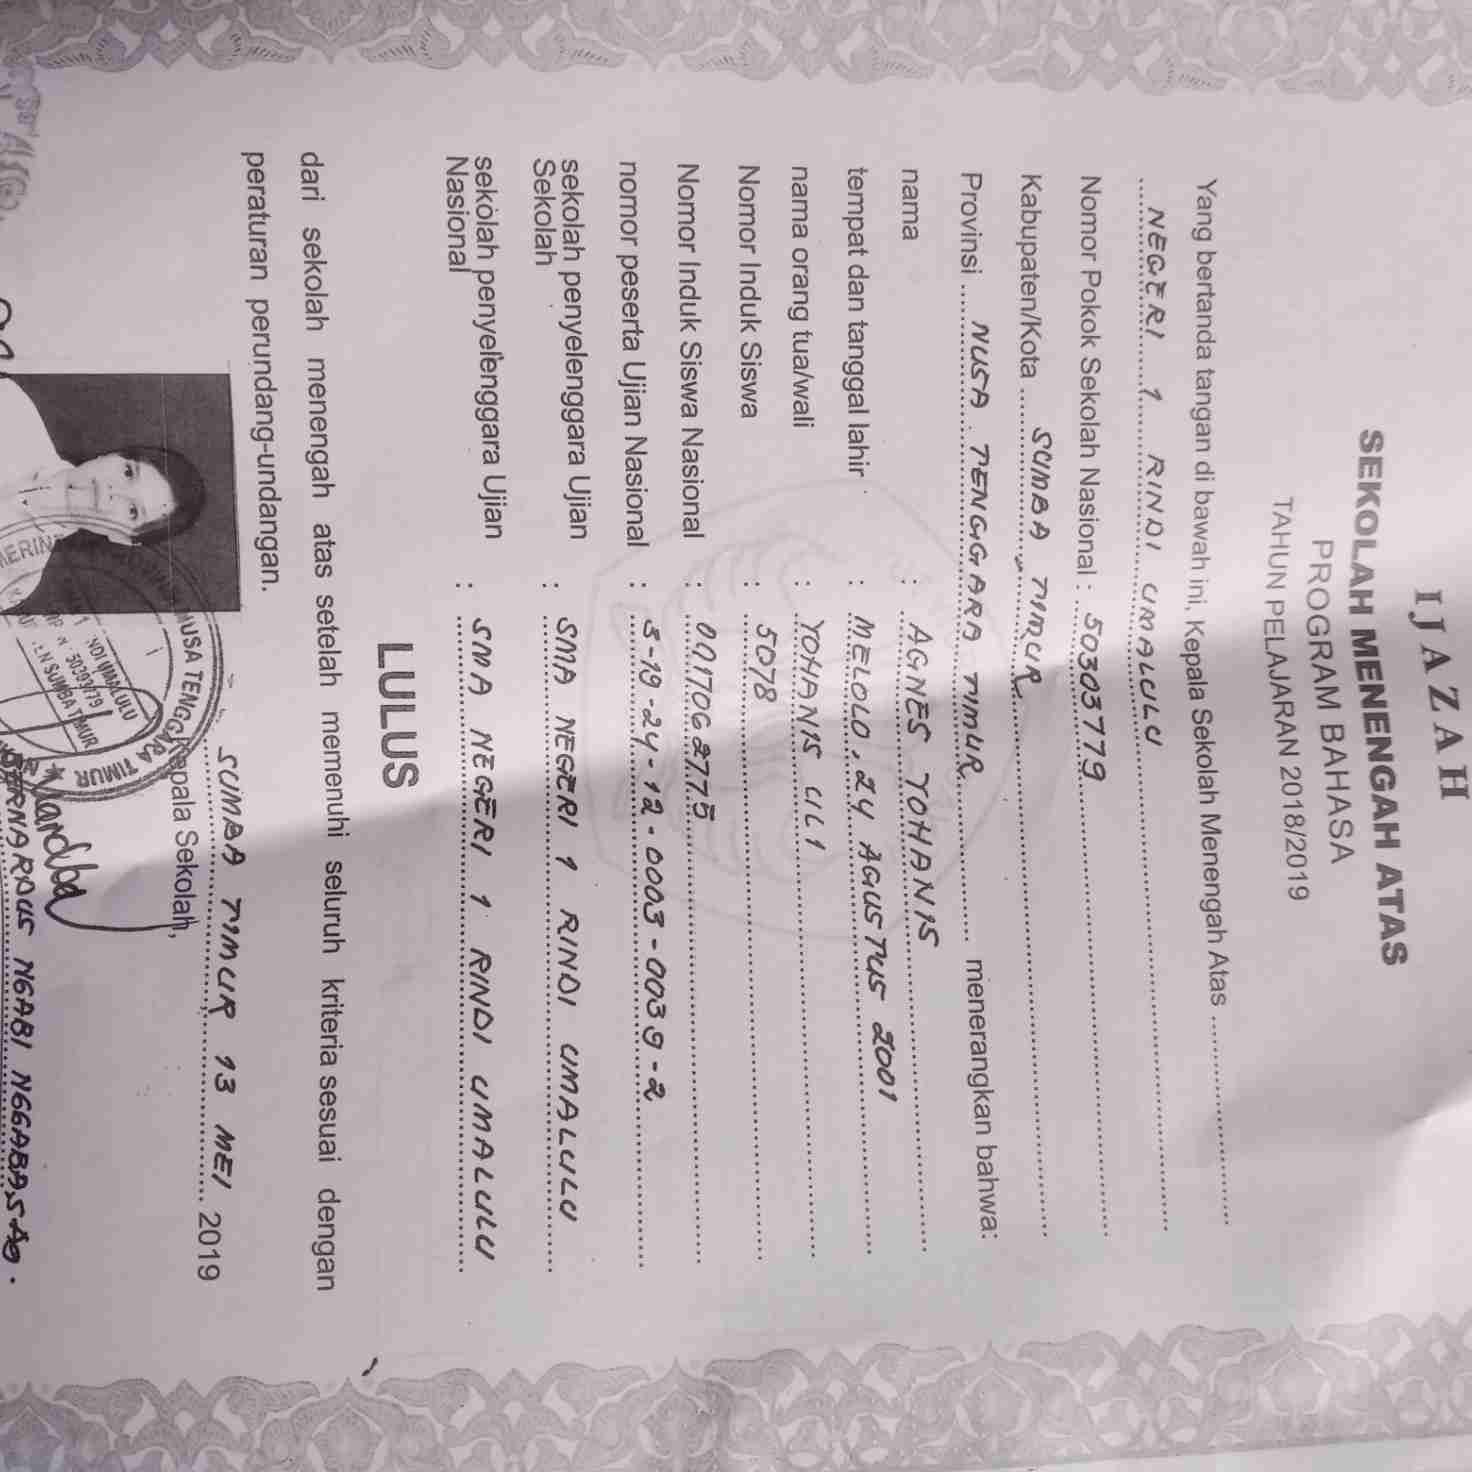 IJAZAH
SEKOLAH MENENGAH ATAS
PROGRAM BAHASA
TAHUN PELAJARAN 2018/2019
Yang bertanda tangan di bawah ini, Kepala Sekolah Menengah Atas
NEGERI 1 RINDI UMALULU
Nomor Pokok Sekolah Nasional : 50303779
Kabupaten/Kota SUMBA TIMUR
Provinsi NUSA TENGGARA TIMUR menerangkan bahwa:
nama : AGNES YOHANIS
tempat dan tanggal lahir : MELOLO, 24 AGUSTUS 2001
nama orang tua/wali : YOHANIS ULI
Nomor Induk Siswa : 5078
Nomor Induk Siswa Nasional : 0017062775
nomor peserta Ujian Nasional : 3-19-24-12-0003-0039-2
sekolah penyelenggara Ujian : SMA NEGERI 1 RINDI UMALULU
Sekolah
sekolah penyelenggara Ujian : SMA NEGERI 1 RINDI UMALULU
Nasional
LULUS
dari sekolah menengah atas setelah memenuhi seluruh kriteria sesuai dengan
peraturan perundang-undangan.
SUMBA TIMUR 13 MEI 2019
Kepala Sekolah,
NUSA TENGGARA TIMUR
SUMBA TIMUR
BERNARDUS NGABI NGGABA,S.Ag.